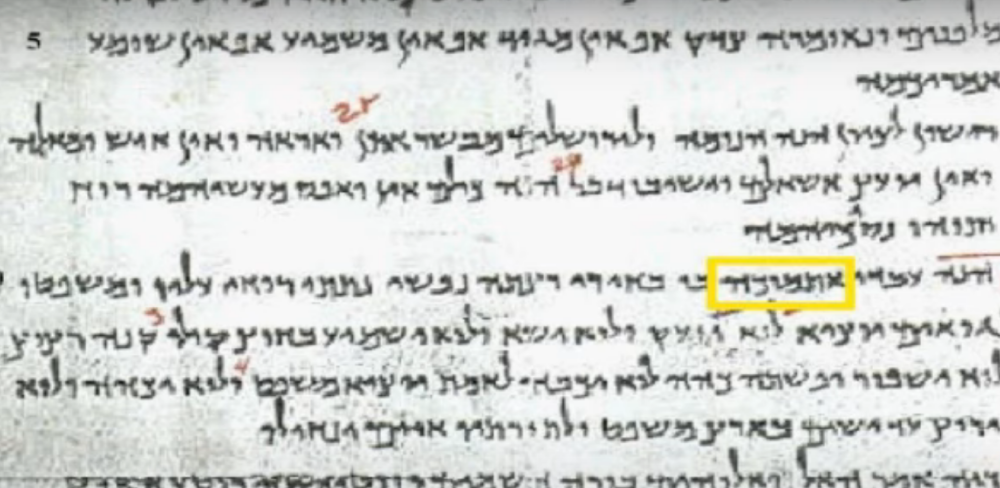 5 מלפנים ונאומרה צדק אף אין מגיד אף אין משמיע אף אין שומע
אמריכמה
ראישון לציון הנה הנומה ולירושלים מבשר אתן ואראה ואין איש ומאלה
ואין יועץ אשאלם וישיבו דבר הנה כולם און ואפס מעשיהמה רוח
ותוהו נסכיהמה
הנה עבדי אתמוכה בו בחירי רצתה נפשי נתתי רוחי עליו ומשפטו
לגואים יוציא לוא יזעק ולוא ישא ולוא ישמיע בחוץ קולו קנה רצוץ
לוא ישבור ופשתה כהה לוא יכבה לאמת יוציא משפט ולוא יכהה ולוא
ירוץ עד ישים בארץ משפט ולתורתיו איים ינחילו